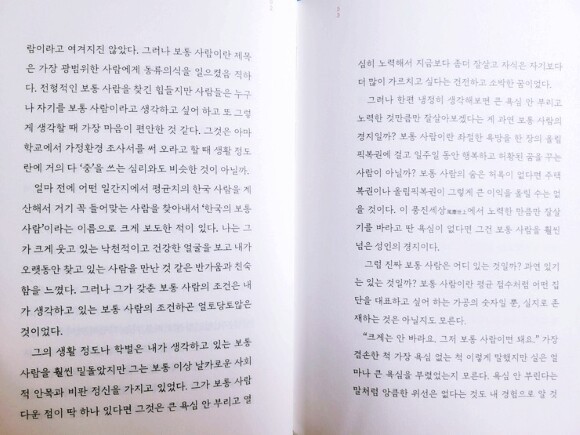 람이라고 여겨지진 않았다. 그러나 보통 사람이란 제목
은 가장 광범위한 사람에게 동류의식을 일으켰음 직하
다. 전형적인 보통 사람을 찾긴 힘들지만 사람들은 누구
나 자기를 보통 사람이라고 생각하고 싶어 하고 또 그렇
게 생각할 때 가장 마음이 편안한 것 같다. 그것은 아마
학교에서 가정환경 조사서를 써 오라고 할 때 생활 정도
란에 거의 다 '중'을 쓰는 심리와도 비슷한 것이 아닐까.
얼마 전에 어떤 일간지에서 평균치의 한국 사람을 계
산해서 거기 꼭 들어맞는 사람을 찾아내서 '한국의 보통
사람'이라는 이름으로 크게 보도한 적이 있다. 나는 그
가 크게 웃고 있는 낙천적이고 건강한 얼굴을 보고 내가
오랫동안 찾고 있는 사람을 만난 것 같은 반가움과 친숙
함을 느꼈다. 그러나 그가 갖춘 보통 사람의 조건은 내
가 생각하고 있는 보통 사람의 조건하곤 얼토당토않은
것이었다.
그의 생활 정도나 학벌은 내가 생각하고 있는 보통
사람을 훨씬 밑돌았지만 그는 보통 이상 날카로운 사회
적 안목과 비판 정신을 가지고 있었다. 그가 보통 사람
다운 점이 딱 하나 있다면 그것은 큰 욕심 안 부리고 열
심히 노력해서 지금보다 좀더 잘살고 자식은 자기보다
더 많이 가르치고 싶다는 건전하고 소박한 꿈이었다.
그러나 한편 냉정히 생각해보면 큰 욕심 안 부리고
노력한 것만큼만 잘살아보겠다는 게 과연 보통 사람의
경지일까? 보통 사람이란 좌절한 욕망을 한 장의 올림
픽복권에 걸고 일주일 동안 행복하고 허황된 꿈을 꾸는
사람이 아닐까? 보통 사람의 숨은 허욕이 없다면 주택
복권이나 올림픽복권이 그렇게 큰 이익을 올릴 수는 없
을 것이다. 이 풍진세상風塵世上에서 노력한 만큼만 잘살
기를 바라고 딴 욕심이 없다면 그건 보통 사람을 훨씬
넘은 성인의 경지이다.
그럼 진짜 보통 사람은 어디 있는 것일까? 과연 있기
는 있는 것일까? 보통 사람이란 평균 점수처럼 어떤 집
단을 대표하고 싶어 하는 가공의 숫자일 뿐, 실지로 존
재하는 것은 아닐지도 모른다.
"크게는 안 바라요. 그저 보통 사람이면 돼요." 가장
겸손한 척 가장 욕심 없는 척 이렇게 말했지만 실은 얼
마나 큰 욕심을 부렸었는지 모른다. 욕심 안 부린다는
말처럼 앙큼한 위선은 없다는 것도 내 경험으로 알 것